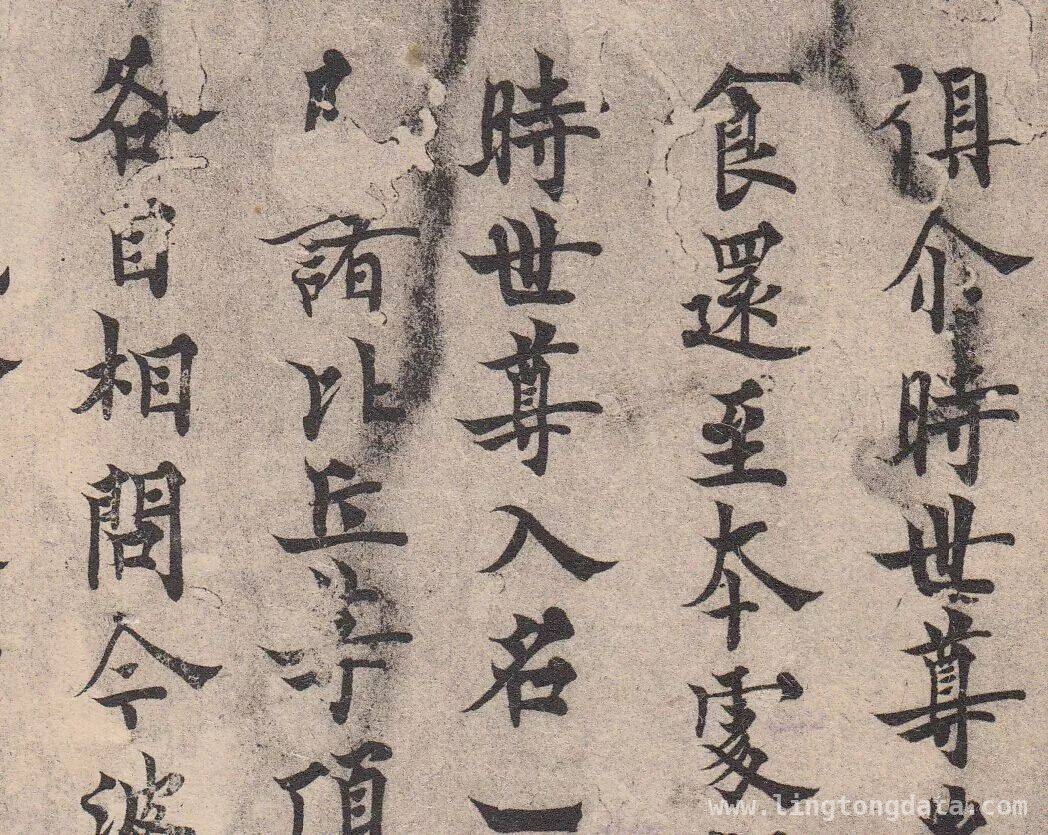 俱尒時世尊
食還至本處
時世尊入名一
諸比丘等頂
各自相問今波
www.lingtongdata.com